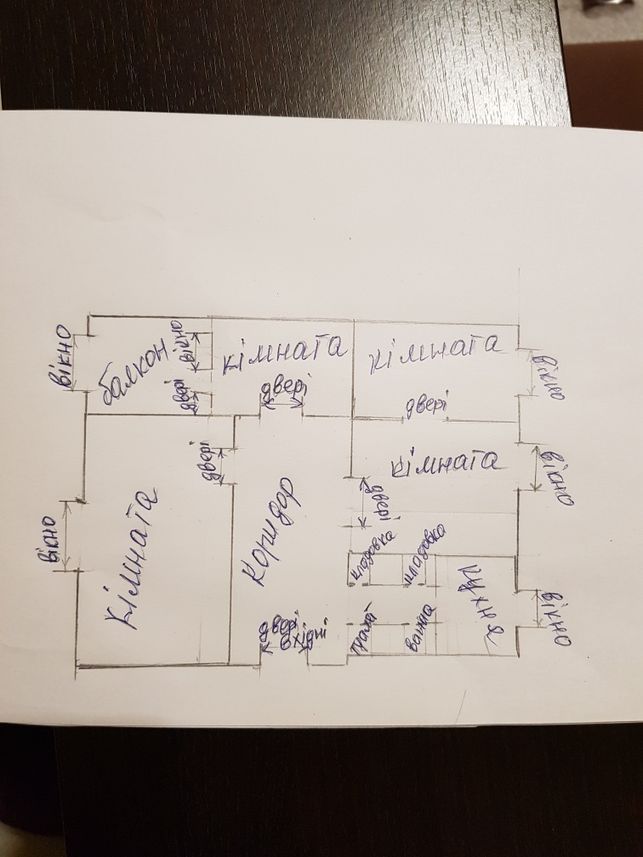 вікно
балкон
двері
вікно
кімната
двері
кімната
двері
вікно
вікно
кімната
двері
коридор
двері
вхідні
кімната
двері
вікно
кладовка
кладовка
туалет
ванна
кухня
вікно